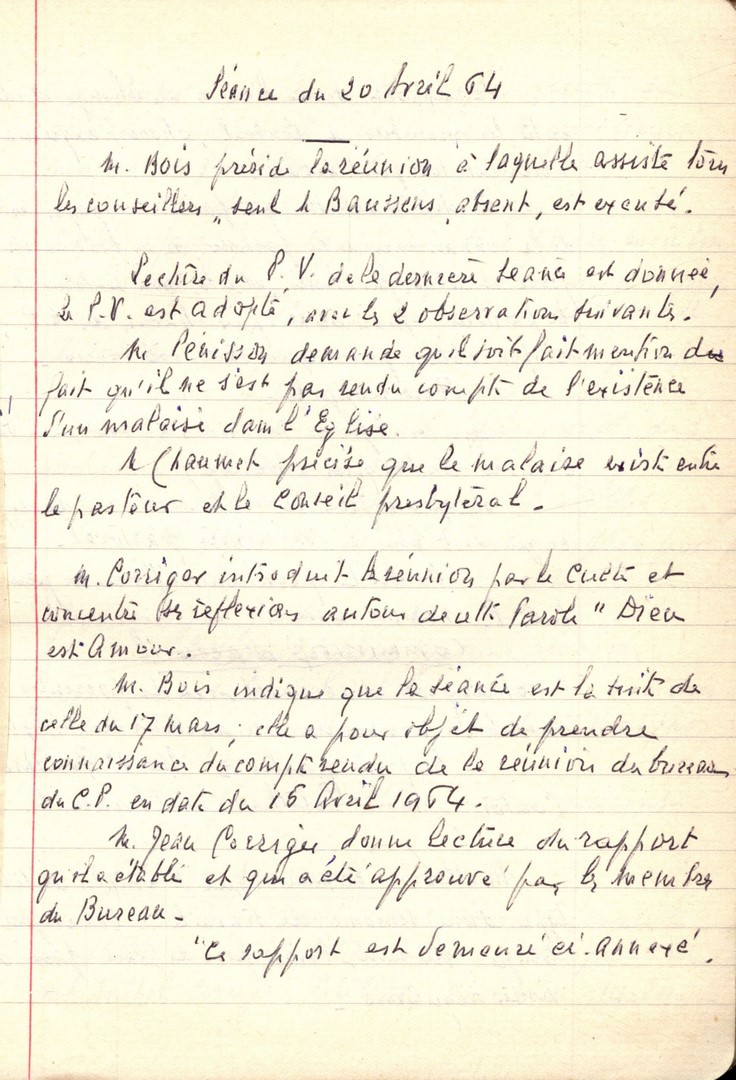 Séance du 20 Avril 64
M. Bois préside la réunion à laquelle assiste tous
les conseillers, seul M Baussens, absent, est excusé.
Lecture du P.V. de la dernière séance est donnée,
Le P.V. est adopté, avec les 2 observations suivantes.
M Pénisson demande qu'il soit fait mention du
fait qu'il ne s'est pas rendu compte de l'existence
d'un malaise dans l'Eglise.
M Chaumet précise que le malaise existe entre
le pasteur et le Conseil presbytéral.
M. Corriger introduit la réunion par le Culte et
concentre ses réflexions autour de cette Parole "Dieu
est Amour.
M. Bois indique que la séance est la suite de
celle du 17 mars; elle a pour objet de prendre
connaissance du compte rendu de la réunion du bureau
du C.P. en date du 15 Avril 1964.
M. Jean Corriger donne lecture du rapport
qu'il a établi et qui a été approuvé par les membres
du Bureau -
"Ce rapport est demeuré ci-annexé.